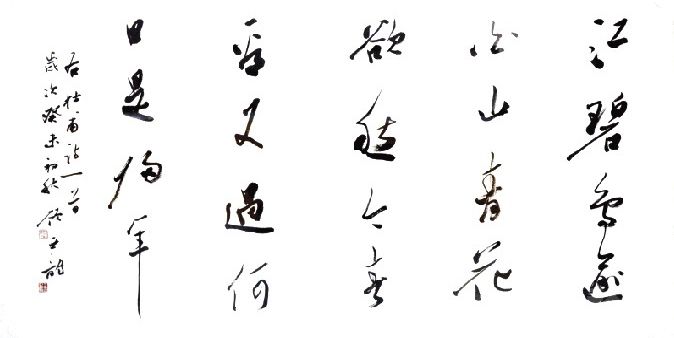 江碧鳥逾
白山青花
欲然今春
看又過何
日是歸年
右杜甫詩一首
歲次癸未初秋